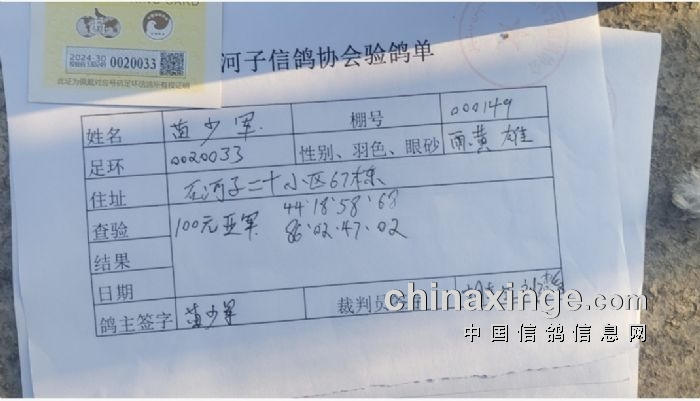 2024-30 0020033
此证为佩戴对应号码足环信鸽所有权证明
河子信鸽协会验鸽单
姓名 苗少军 棚号 000149
足环 0020033 性别、羽色、眼砂 雨黄 雄
住址 石河子二十小区67栋
查验 100元亚军 44·18·58·68
86·02·47·02
结果
日期
鸽主签字 苗少军 裁判员
chinaxinge.com
中国信鸽信息网